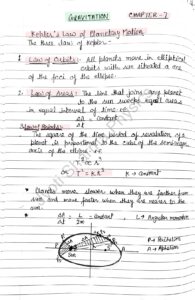 GRAVITATION CHAPTER-7
Kepler's Law of Planetary Motion
The three laws of Kepler-
1. Law of Orbits: All planets move in elliptical
orbits with sun situated a one
of the foci of the ellipse.
2. Law of Areas: The line that joins any planet
to the sun sweeps equal areas
in equal interval of time i.e.
ΔA/Δt = Constant
Law of Periods:
The square of the time period of revolution of a
planet is proportional to the cube of the semimajor
axis of the ellipse i.e.
T² ∝ R³
or T² = KR³ K → Constant
* Planets move slower when they are farther from
sun and move faster when they are nearer to the
sun.
* ΔA/Δt = L/2m = Constant, L → Angular momentum
P → Perihelion
A → Aphelion
P
A
Sun